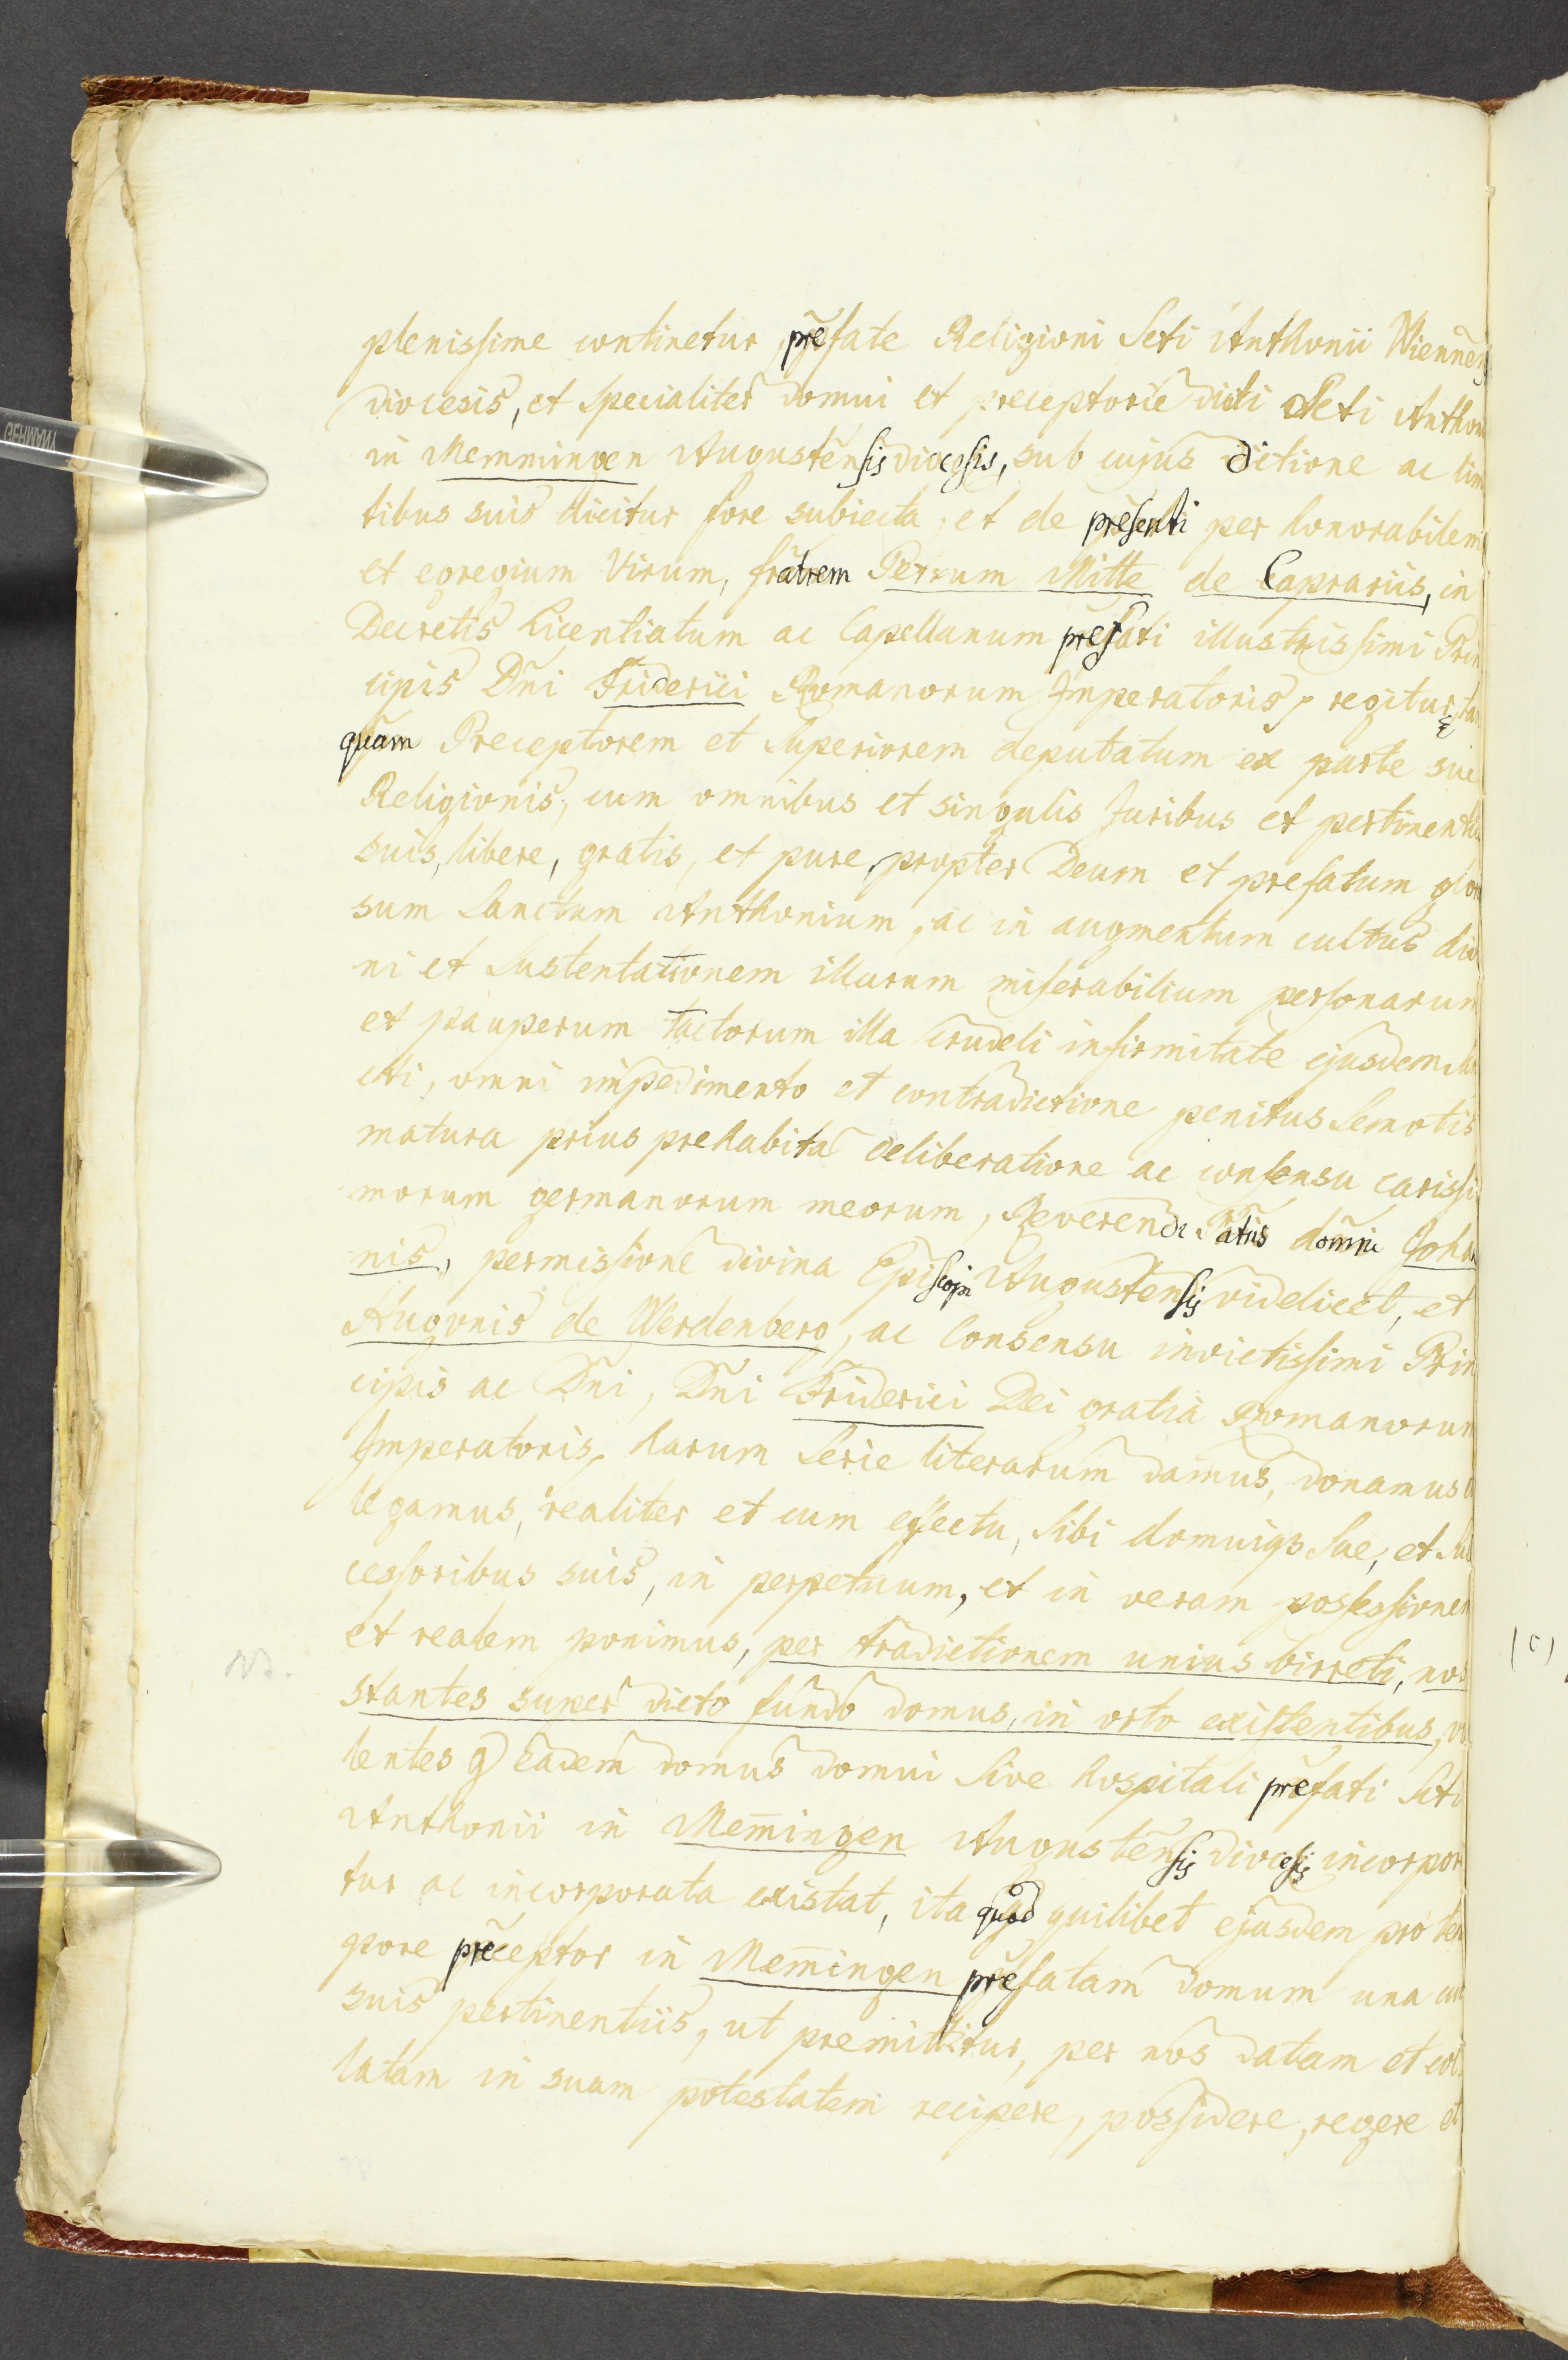 plenissime continetur, prefate Religioni Scti Anthonii Wienneñ
diocesis, et specialiter domui et preceptorie dicti Scti Anthon
in Memmingen Augustensis diocesis, sub cujus ditione ac lim
tibus suis dicitur fore subiecta, et de presenti per honorabilem
et egregium Virum, fratrem Petrum Mitte de Caprariis, in
Decretis Licentiatum ac Capellanum prefati illustrissimi Prin
cipis Dñi Friderici Romanorum Imperatoris, regitur, tan
quam Preceptorem et Superiorem deputatum ex parte sue
Religionis, cum omnibus et singulis Juribus et pertinentii
suis, libere, gratis, et pure, propter Deum et prefatum glori
sum Sanctum Anthonium, ac in augmentum cultus divi
ni et sustentationem illarum miserabilium personarum
et pauperum tactorum illa crudeli infirmitate ejusdem
cti, omni impedimento et contradictione penitus semotis
matura prius prehabita deliberatione ac consensu carissi
morum germanorum meorum, Reverendi Patris domni Johan
nis, permissione divina Episcopi Augustensis videlicet, et
Hugonis de Werdenberg, ac Consensu invictissimi Prin
cipis ac Dñi, Dñi Friderici Dei gratia Romanorum
Imperatoris, harum serie literarum damus, donamus
legamus, realiter et cum effectu, sibi domuiqz sue, et suc
cessoribus suis, in perpetuum, et in veram possessionem
et realem ponimus, per tradictionem unius birreti, nos
stantes super dicto fundo domus, in orto existentibus, vo
NB.
lentes q eadem domus domui sive hospitali prefati Scti
Anthonii in Mem̄ingen Augustensis diocesis incorpor
tur ac incorporata existat, ita quod quilibet ejusdem pro tem
pore preceptor in Mem̄ingen prefatam domum una cum
suis pertinentiis, ut premittitur, per nos datam et col
latam in suam potestatem recipere, possidere, regere et
(c)
GERMANY